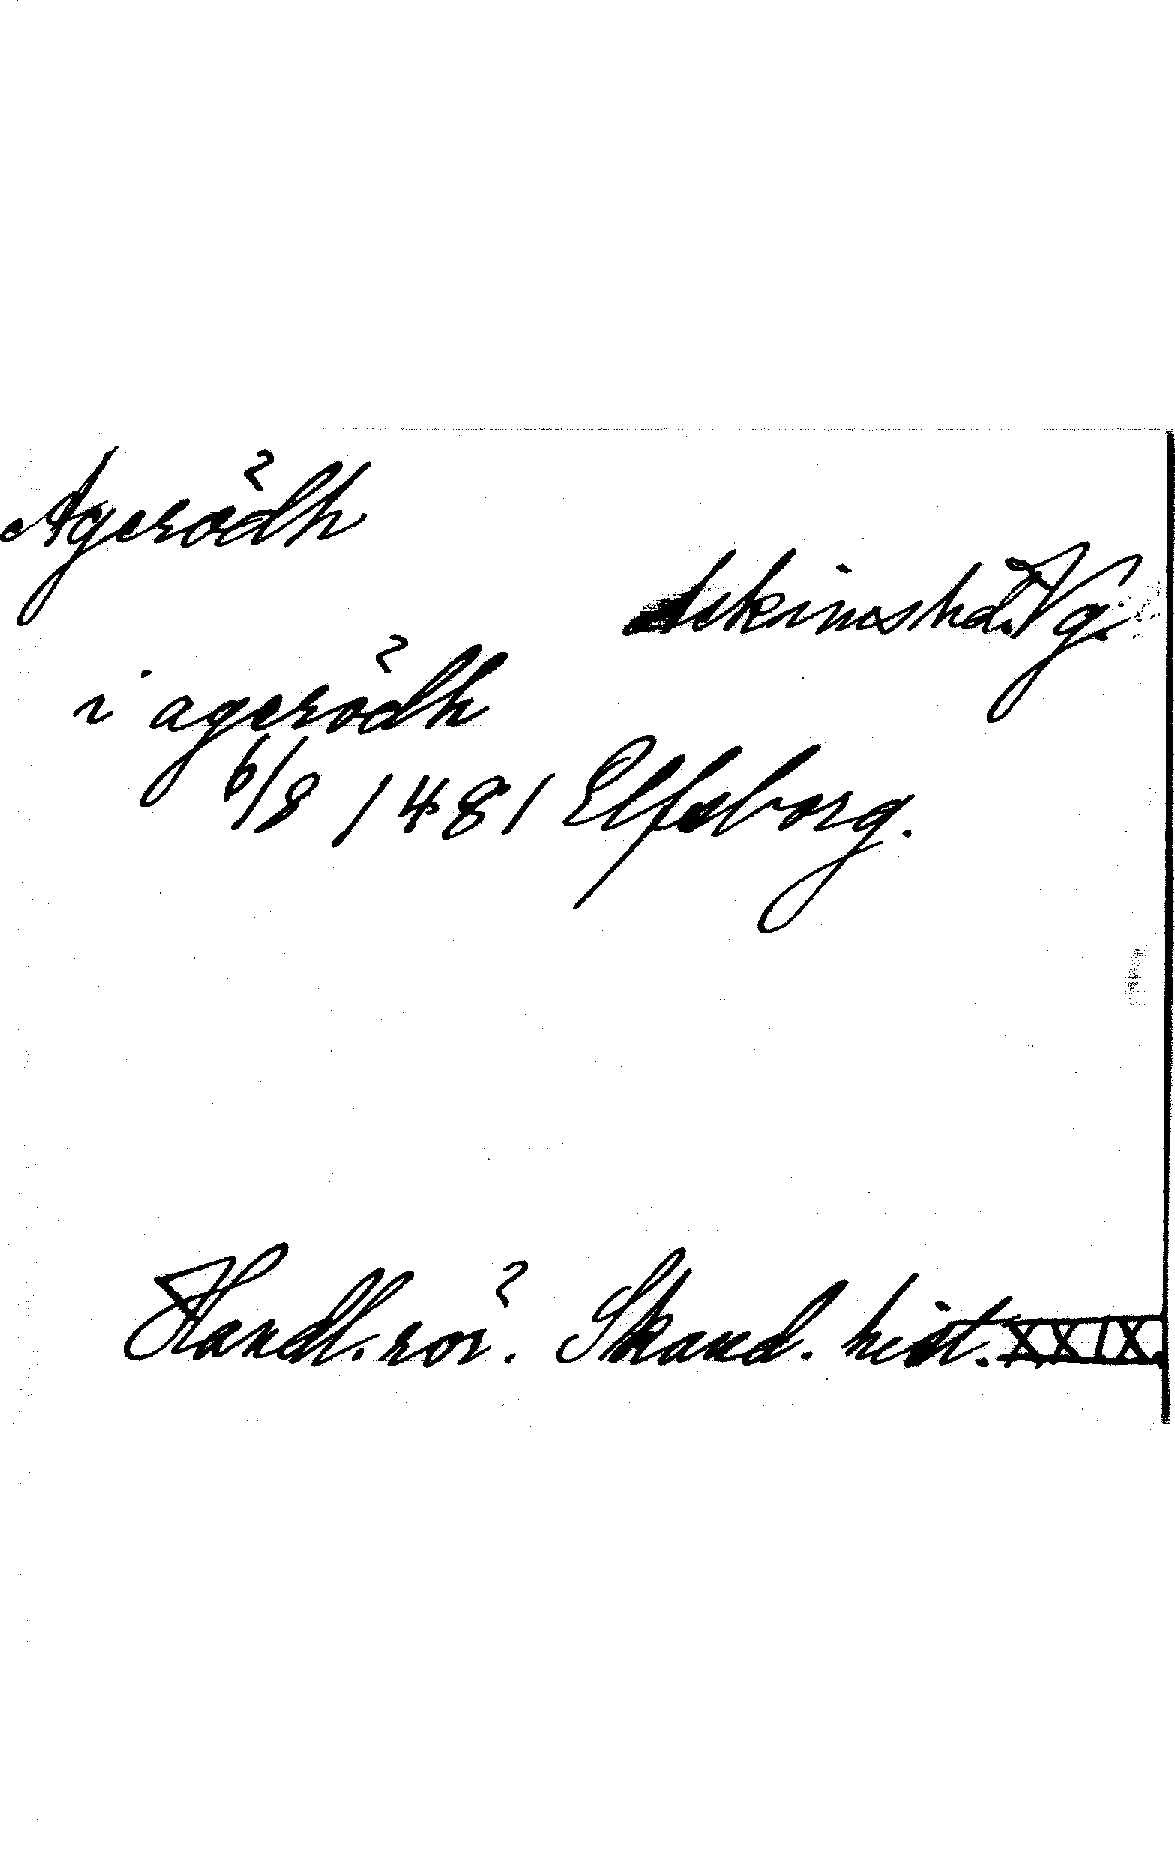 Agerödh
Askimshd. Vg.
i agerödh
6/8 1481 Elfsborg.
Handl. rör. Skand. hist. XXIX.